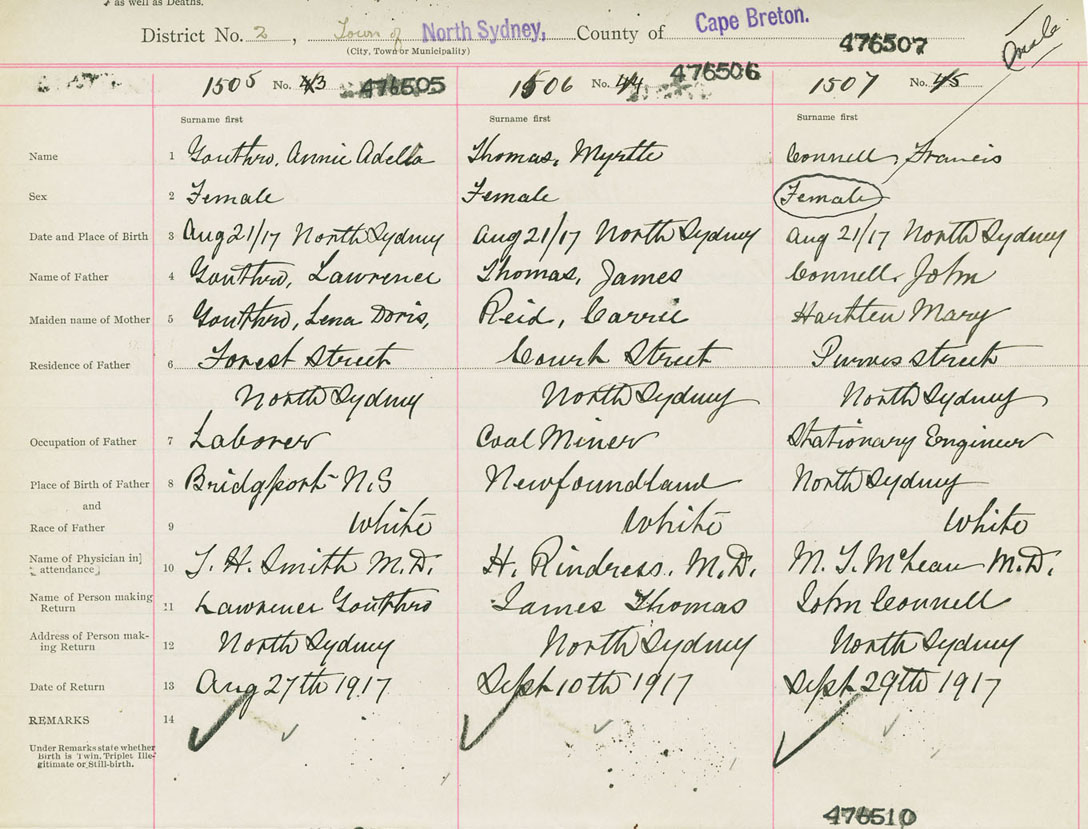 as well as Deaths.
District No. 2, Town of North Sydney, County of Cape Breton.
(City, Town or Municipality)
476507
male
1505 No. 43 476505 1506 No. 44 476506 1507 No. 45
Surname first Surname first Surname first
Name 1 Gouthro, Annie Adella Thomas, Myrtle Connell, Francis
Sex 2 Female Female Female
Date and Place of Birth 3 Aug 21/17 North Sydney Aug 21/17 North Sydney Aug 21/17 North Sydney
Name of Father 4 Gouthro, Lawrence Thomas, James Connell, John
Maiden name of Mother 5 Gouthro, Lena Doris, Reid, Carrie Hartten Mary
Residence of Father 6 Forest Street Court Street Purves Street
North Sydney North Sydney North Sydney
Occupation of Father 7 Laborer Coal Miner Stationary Engineer
Place of Birth of Father 8 Bridgport N.S Newfoundland North Sydney
and
Race of Father 9 White White White
Name of Physician in attendance 10 T. H. Smith M.D. H. Rindress. M.D. M. T. McLean M.D.
Name of Person making
Return 11 Lawrence Gouthro James Thomas John Connell
Address of Person mak-
ing Return 12 North Sydney North Sydney North Sydney
Date of Return 13 Aug 27th 1917 Sept 10th 1917 Sept 29th 1917
REMARKS 14
Under Remarks state whether
Birth is Twin, Triplet Ille-
gitimate or Still-birth.
476510